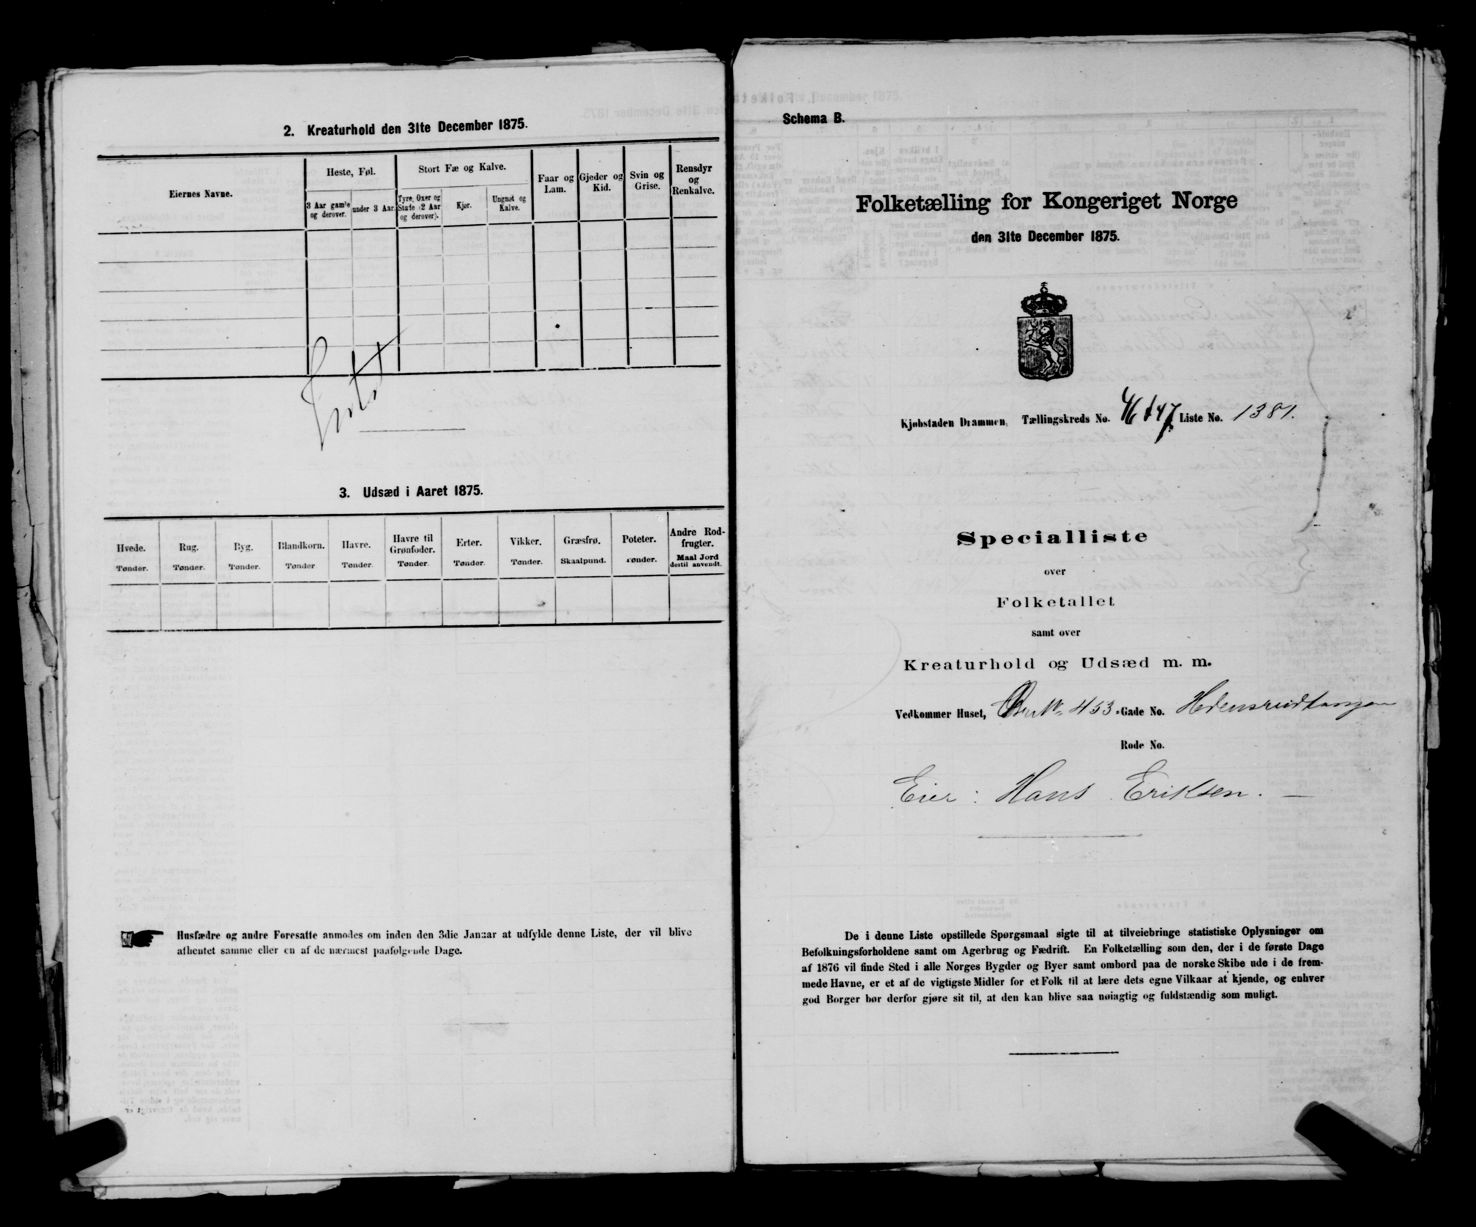 2. Kreaturhold den 31te December 1875.
Eiernes Navne.
Heste, Føl.
Stort Fæ og Kalve.
Faar og Lam.
Gjeder og Kid.
Svin og Grise.
Rensdyr og Renkalve.
3 Aar gamle og derover.
under 3 Aar.
Tyre, Oxer og Stude (2 Aar og derover).
Kjør.
Ungnøt og Kalve.
3. Udsæd i Aaret 1875.
Hvede. Tønder.
Rug. Tønder.
Byg. Tønder.
Blandkorn. Tønder
Havre. Tønder.
Havre til Grønfoder. Tønder.
Erter. Tønder.
Vikker. Tønder.
Græsfrø. Skaalpund.
Poteter. Tønder.
Andre Rodfrugter. Maal Jord dertil anvendt.
Husfædre og andre Foresatte anmodes om inden den 3die Januar at udfylde denne Liste, der vil blive
afhentet samme eller en af de nærmest paafølgende Dage.
Schema B.
Folketælling for Kongeriget Norge
den 31te December 1875.
Kjøbstaden Drammen, Tællingskreds No. Liste No. 1381.
Specialliste
over
Folketallet
samt over
Kreaturhold og Udsæd m. m.
Vedkommer Huset, 453. Gade No.
Rode No.
Eier: Hans Eriksen. —
De i denne Liste opstillede Spørgsmaal sigte til at tilveiebringe statistiske Oplysninger om
Befolkningsforholdene samt om Agerbrug og Fædrift. En Folketælling som den, der i de første Dage
af 1876 vil finde Sted i alle Norges Bygder og Byer samt ombord paa de norske Skibe ude i de frem-
mede Havne, er et af de vigtigste Midler for et Folk til at lære dets egne Vilkaar at kjende, og enhver
god Borger bør derfor gjøre sit til, at den kan blive saa nøiagtig og fuldstændig som muligt.